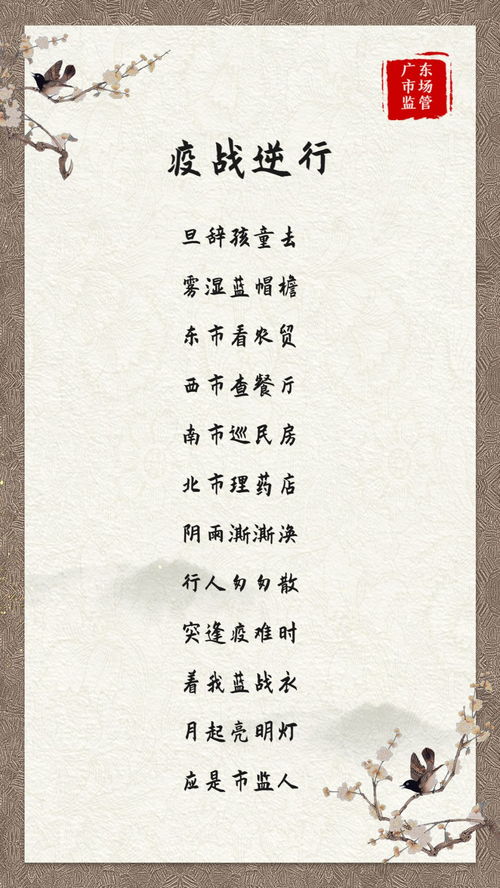 广东
市场
监管
疫战逆行
旦辞孩童去
雾湿蓝帽檐
东市看农贸
西市查餐厅
南市巡民房
北市理药店
阴雨澌澌涣
行人匆匆散
突逢疫难时
着我蓝战衣
月起亮明灯
应是市监人